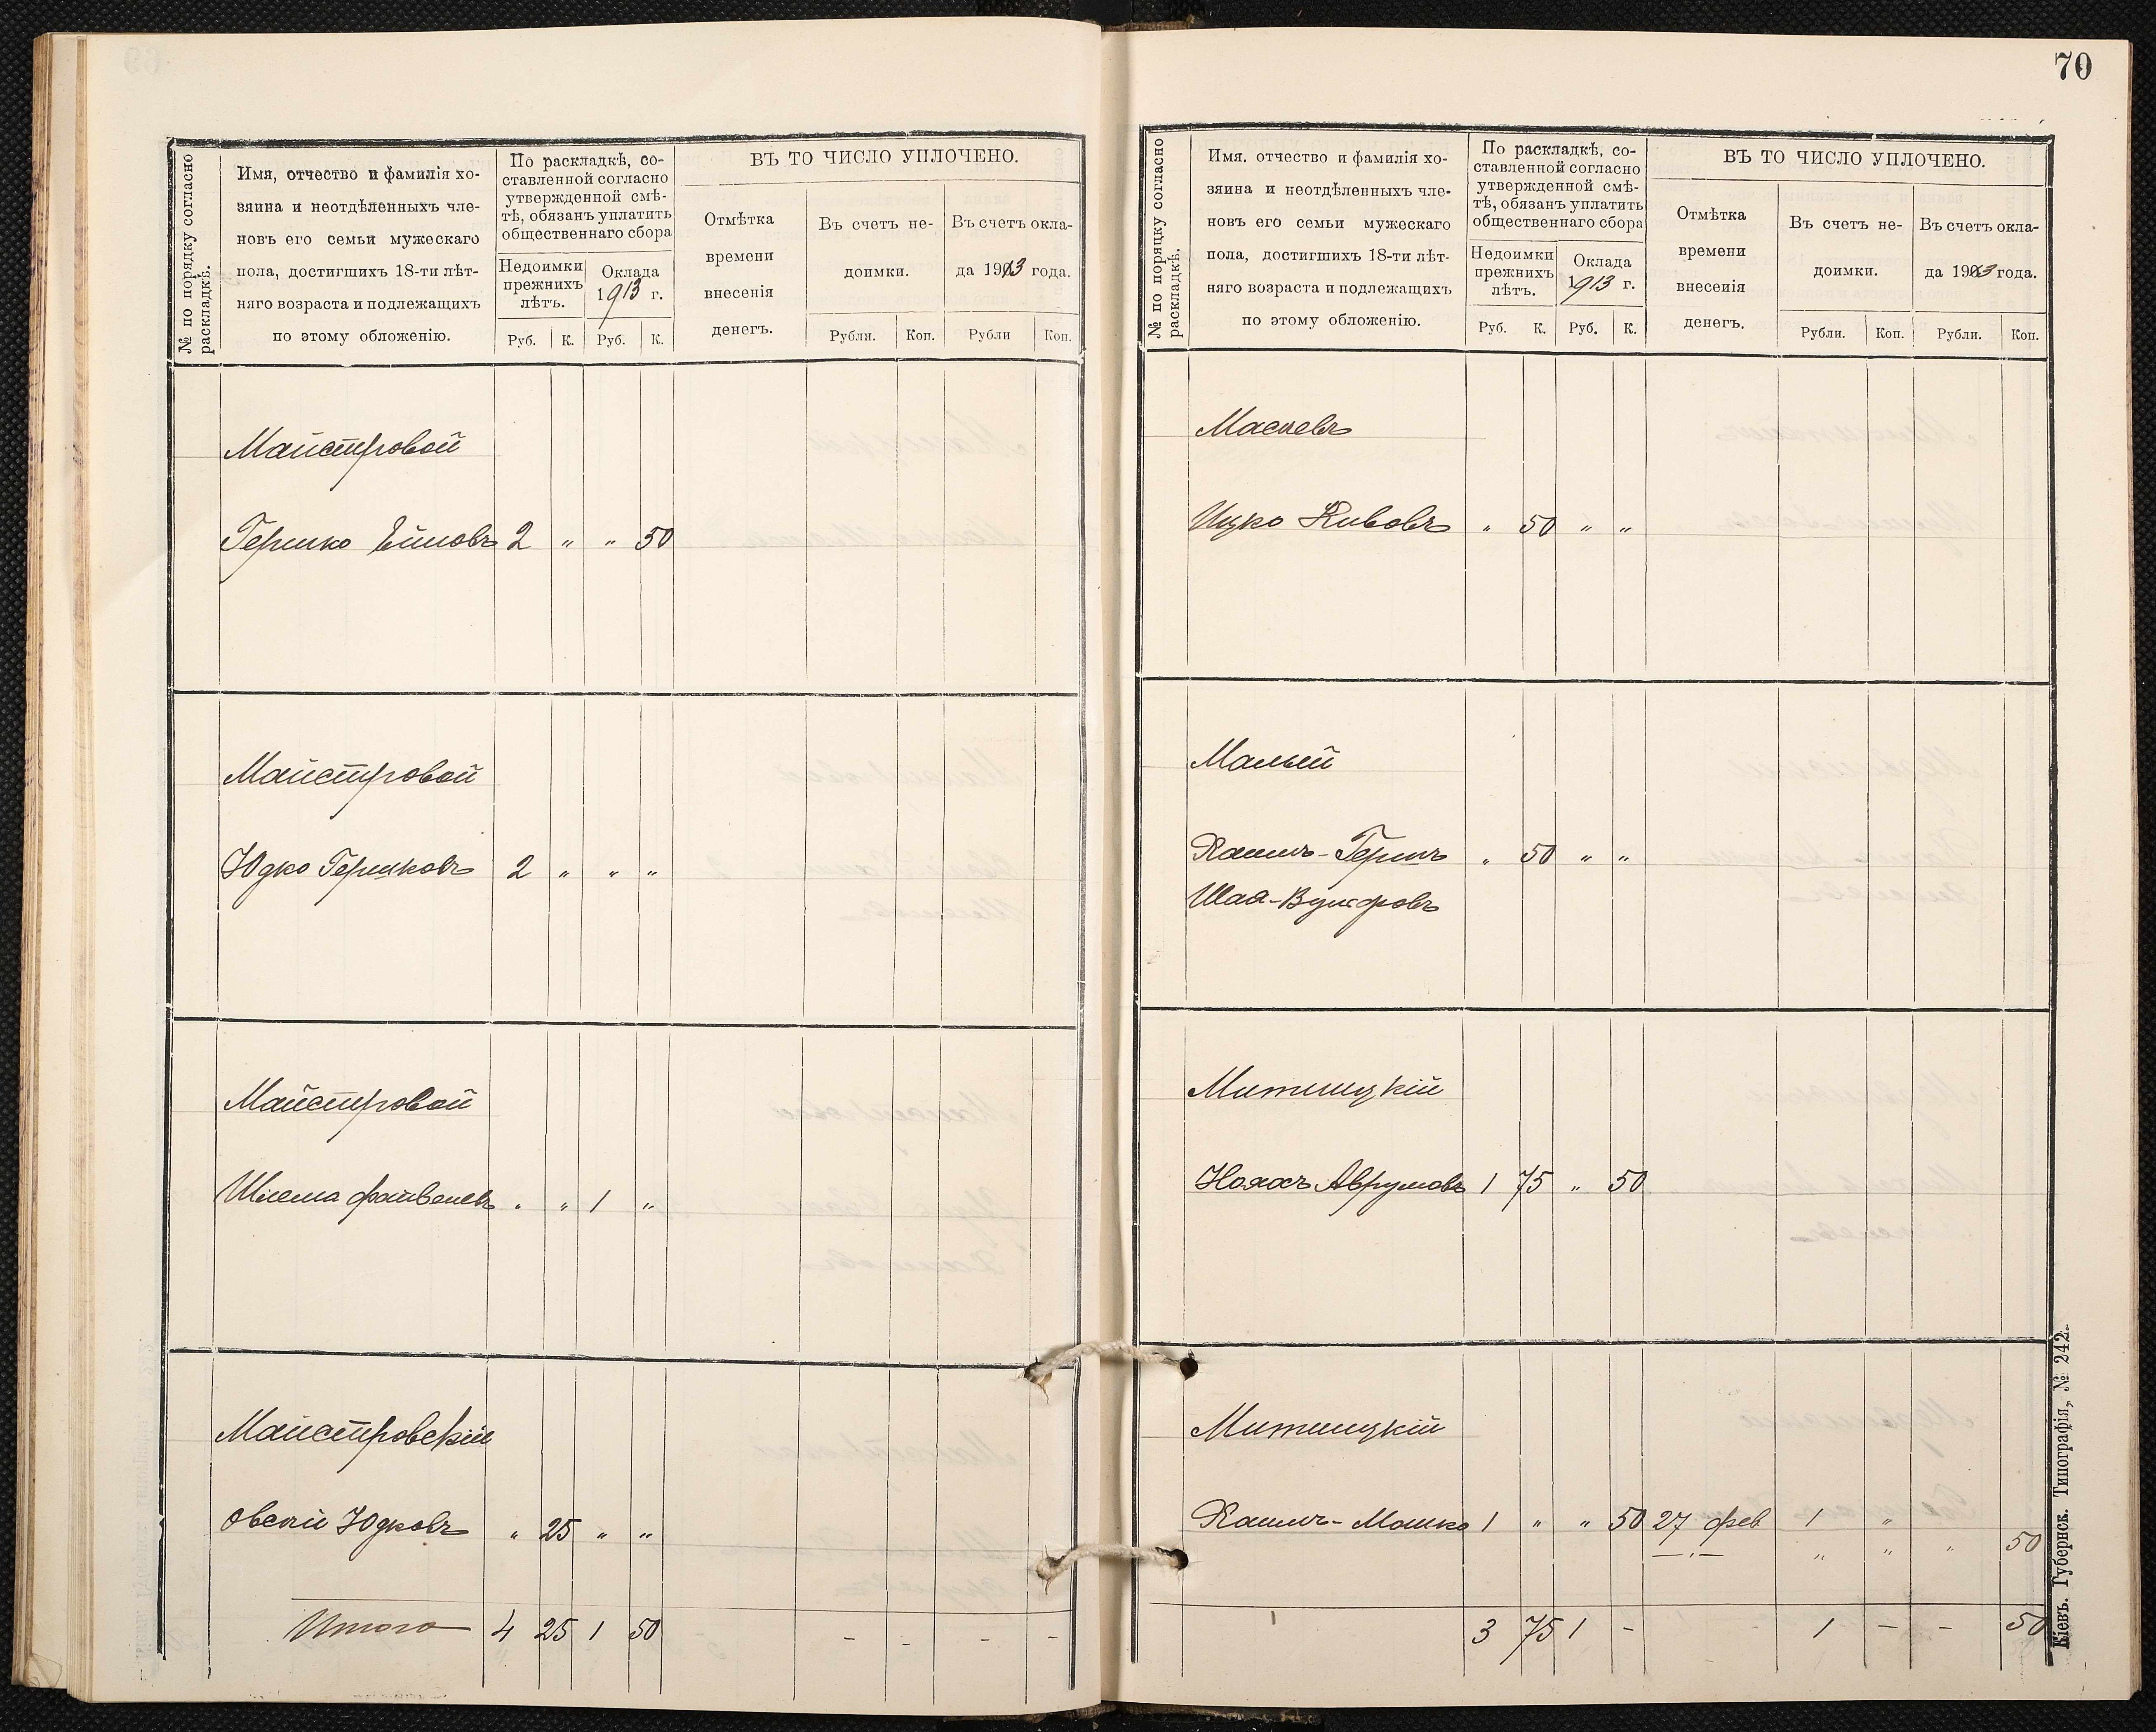 № по порядку согласно
раскладкѣ.
Имя, отчество и фамилія хо-
зяина и неотдѣленныхъ чле-
новъ его семьи мужескаго
пола, достигшихъ 18-ти лѣт-
няго возраста и подлежащихъ
по этому обложенію.
По раскладкѣ, со-
ставленной согласно
утвержденной смѣ-
тѣ, обязанъ уплатить
общественнаго сбора
Недоимки
прежнихъ
лѣтъ.
Оклада
1913 г.
Руб. К. Руб. К.
ВЪ ТО ЧИСЛО УПЛОЧЕНО.
Отмѣтка
времени
внесенія
денегъ.
Въ счетъ не-
доимки.
Въ счетъ окла-
да 1913 года.
Рубли. Коп. Рубли Коп.
Майстровой
Гершко 2 " " 50
Майстровой
Юдко Гершковъ 2 " " "
Майстровой
Шлема Файвелевъ " " 1 "
Майстровскій
Овсій Юдковъ " 25 " "
Итого 4 25 1 50 - - - -
70
№ по поряцку согласно
раскладкѣ.
Имя. отчество и фамилія хо-
зяина и неотдѣленныхъ чле-
новъ его семьи мужескаго
пола, достигшихъ 18-ти лѣт-
няго возраста и подлежащихъ
по этому обложенію.
По раскладкѣ, со-
ставленной согласно
утвержденной смѣ-
тѣ, обязанъ уплатить
общественнаго сбора
Недоимки
прежнихъ
лѣтъ.
Оклада
1913 г.
Руб. К. Руб. К.
ВЪ ТО ЧИСЛО УПЛОЧЕНО.
Отмѣтка
времени
внесенія
денегъ.
Въ счетъ не-
доимки.
Въ счетъ окла-
да 1913 года.
Рубли. Коп. Рубли. Коп.
Ицко Кивовъ " 50 " "
Малый
Хаимъ-Гершъ " 50 " "
Шая-Вульфовъ
Митницкій
Нохохъ Аврумовъ 1 75 " 50
Митницкій
Хаимъ-Мошко 1 " " 50 27 фев 1 "
—"— " " " 50
3 75 1 - 1 - - 50
Кіевъ. Губернск. Типографія, № 242.